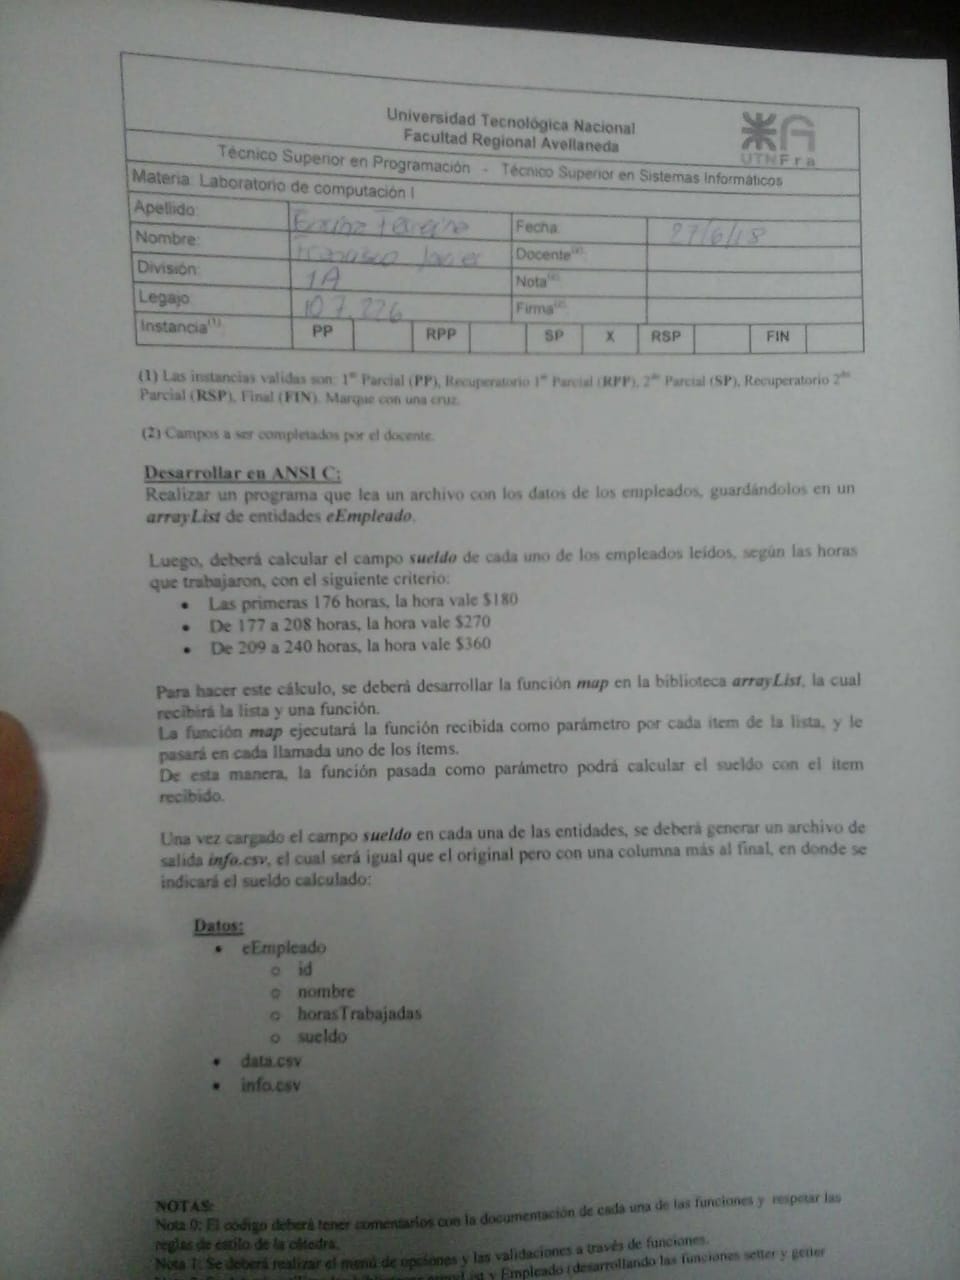 Universidad Tecnológica Nacional
Facultad Regional Avellaneda
UTNFra
Técnico Superior en Programación - Técnico Superior en Sistemas Informáticos
Materia: Laboratorio de computación I
Apellido:
Fecha: 27/6/18
Nombre: Francisco Javier
Docente(2):
División: 1A
Nota(2):
Legajo: 107.226
Firma(2):
Instancia(1) PP RPP SP X RSP FIN
(1) Las instancias validas son: 1er Parcial (PP), Recuperatorio 1er Parcial (RPP), 2do Parcial (SP), Recuperatorio 2do
Parcial (RSP), Final (FIN). Marque con una cruz.
(2) Campos a ser completados por el docente.
Desarrollar en ANSI C:
Realizar un programa que lea un archivo con los datos de los empleados, guardándolos en un
arrayList de entidades eEmpleado.
Luego, deberá calcular el campo sueldo de cada uno de los empleados leídos, según las horas
que trabajaron, con el siguiente criterio:
• Las primeras 176 horas, la hora vale $180
• De 177 a 208 horas, la hora vale $270
• De 209 a 240 horas, la hora vale $360
Para hacer este cálculo, se deberá desarrollar la función map en la biblioteca arrayList, la cual
recibirá la lista y una función.
La función map ejecutará la función recibida como parámetro por cada item de la lista, y le
pasará en cada llamada uno de los ítems.
De esta manera, la función pasada como parámetro podrá calcular el sueldo con el ítem
recibido.
Una vez cargado el campo sueldo en cada una de las entidades, se deberá generar un archivo de
salida info.csv, el cual será igual que el original pero con una columna más al final, en donde se
indicará el sueldo calculado:
Datos:
• eEmpleado
o id
o nombre
o horasTrabajadas
o sueldo
• data.csv
• info.csv
NOTAS:
Nota 0: El código deberá tener comentarios con la documentación de cada una de las funciones y respetar las
reglas de estilo de la cátedra.
Nota 1: Se deberá realizar el menú de opciones y las validaciones a través de funciones.
y Empleado (desarrollando las funciones setter y getter